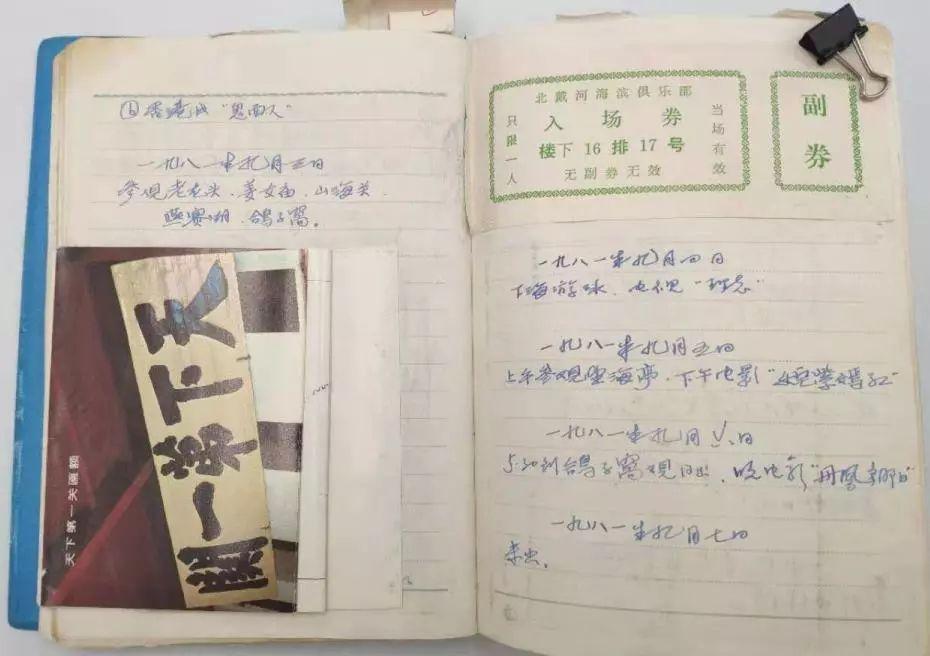 香港片"鬼面人"
一九八一年九月三日
参观老龙头、姜女庙、山海关、
燕赛湖、鸽子窝。
天下第一關
天下第一关匾额
北戴河海滨俱乐部
入场券
楼下 16 排 17 号
无副券无效
只限一人
当场有效
副券
一九八一年九月四日
下海游泳、电视
一九八一年九月五日
上午参观望海亭、下午电影
一九八一年九月六日
5:30到鸽子窝观日出、晚电影"丹凤朝阳"
一九八一年九月七日
未出。